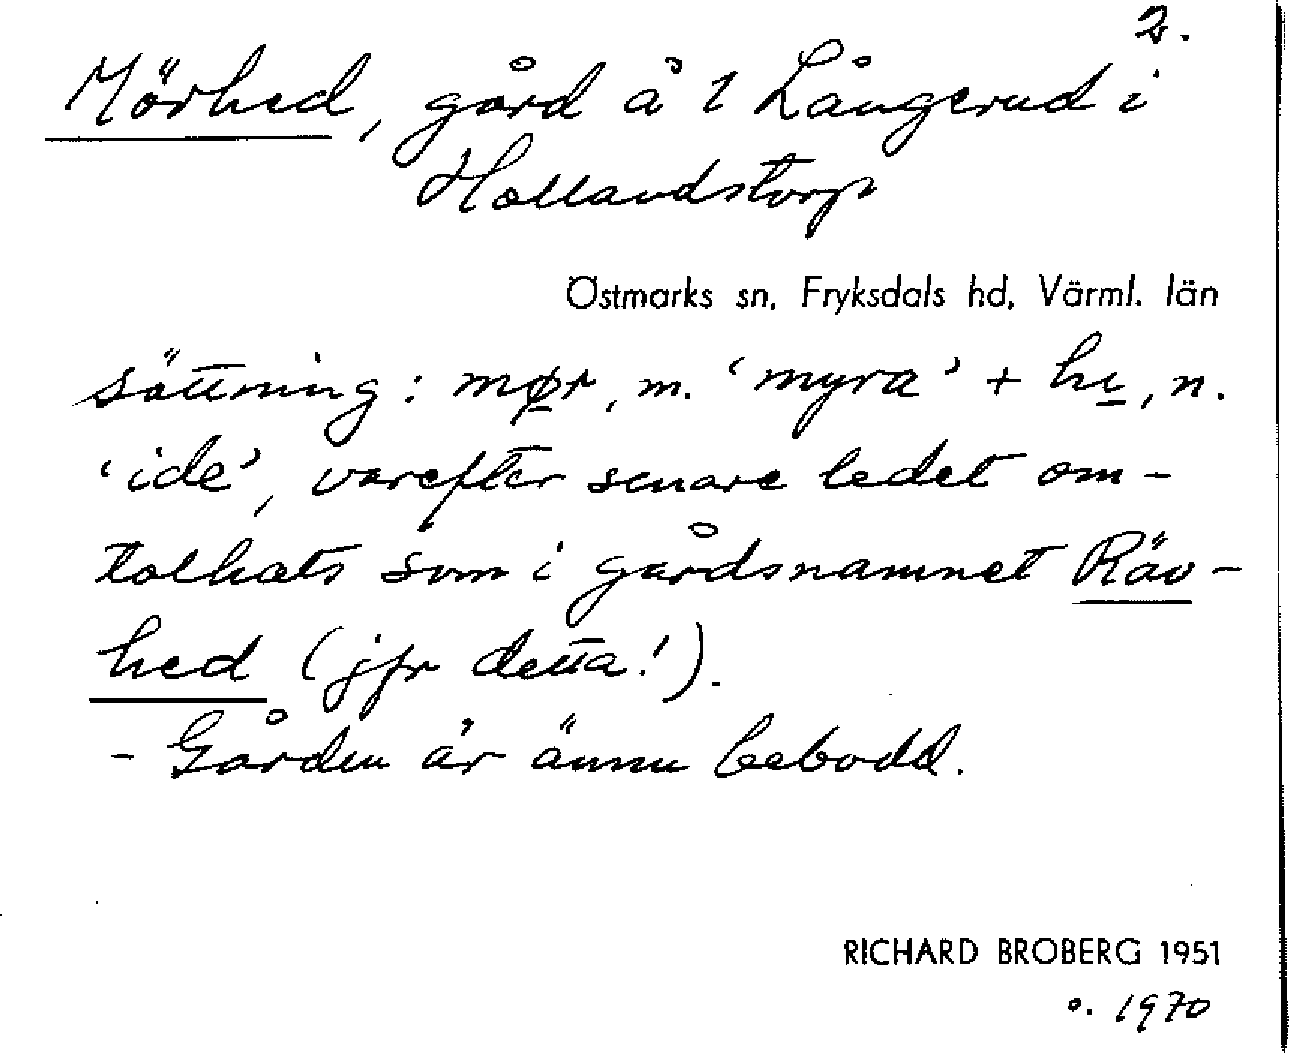 2.
Mörhed, gård å 1 Långerud i
Hollandstorp
Östmarks sn, Fryksdals hd, Värml. län
sättning: mø̱r, m. ‘myra’ + hi̱, n.
‘ide’, varefter senare ledet om-
tolkats som i gårdsnamnet Räv-
hed (jfr detta!).
- Gården är ännu bebodd.
RICHARD BROBERG 1951
o. 1970